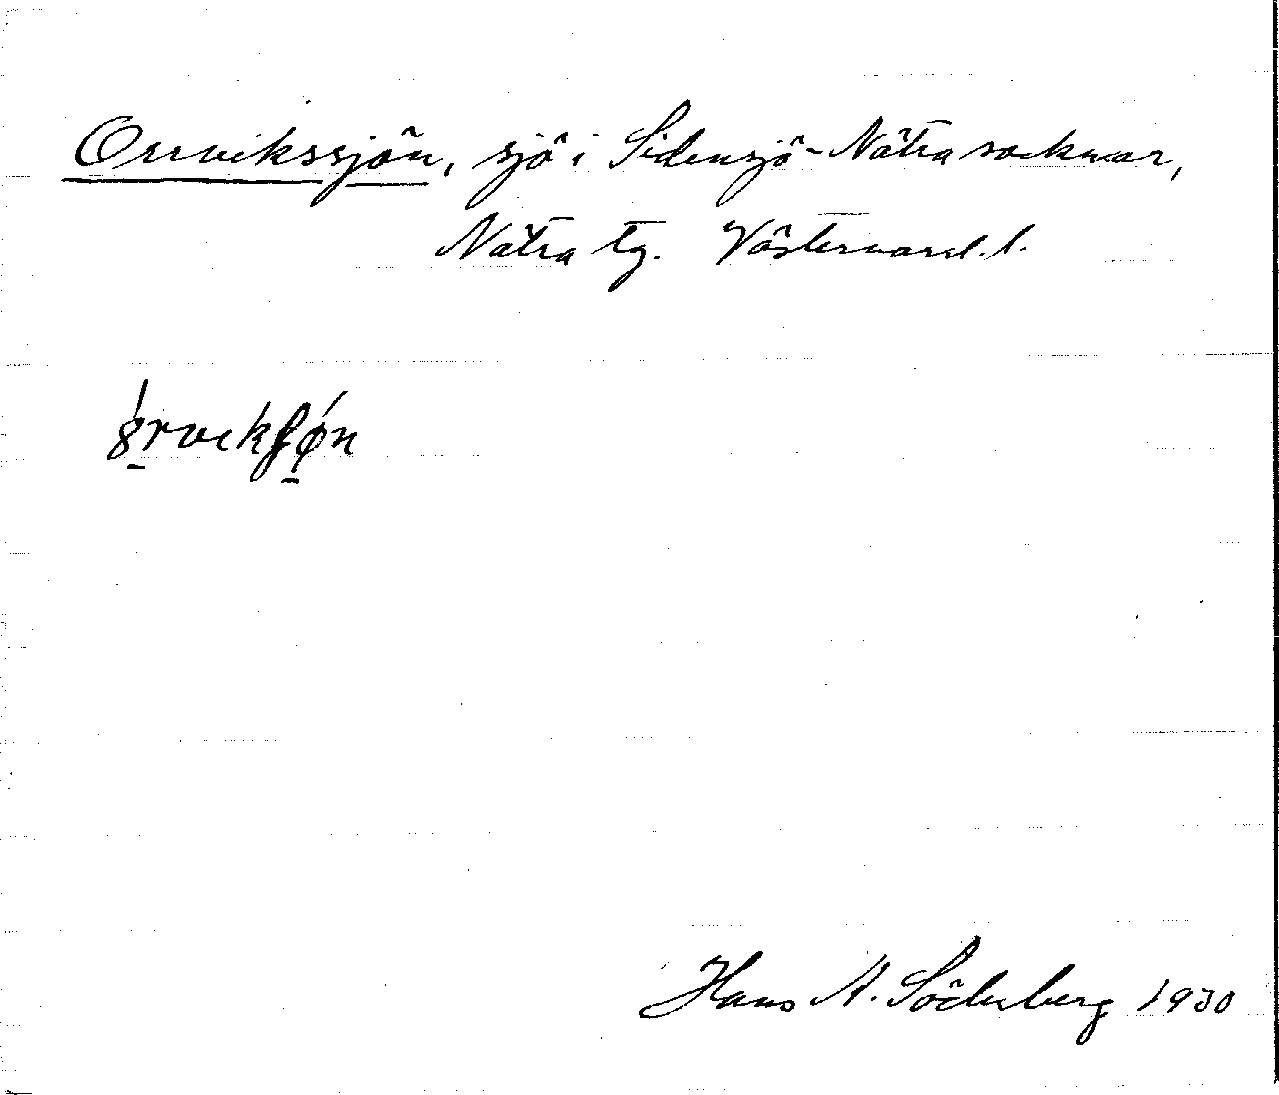 Orrvikssjön, sjö i Sidensjö-Nätra socknar,
Nätra tg. Västernorrl. l.
Hans A. Söderberg 1930